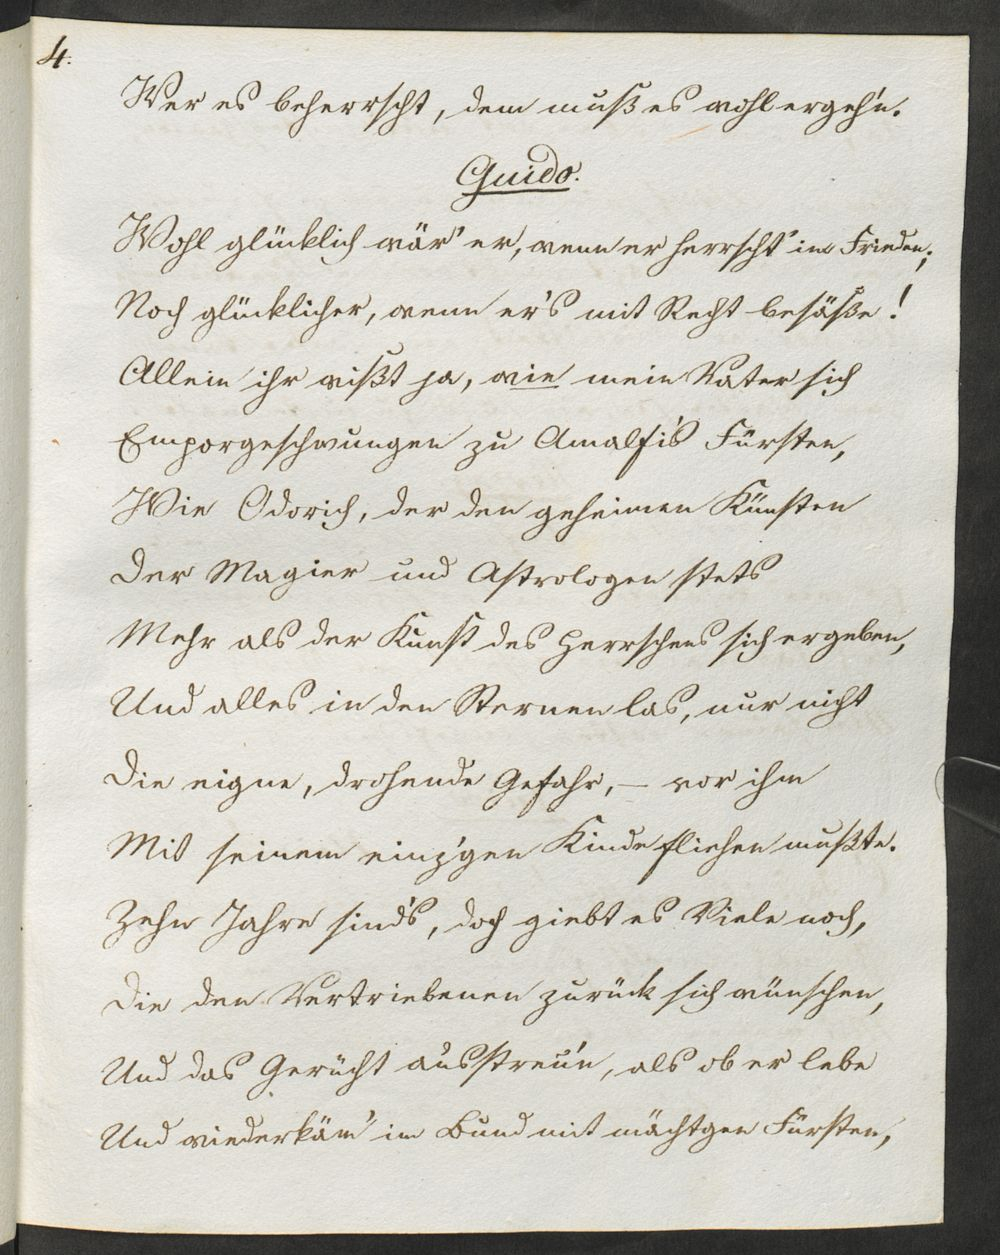 4.
Wer es beherrscht, dem muß es wohl ergeh'n.
Guido.
Wohl glücklich wär' er, wenn er herrscht' im Frieden;
Noch glücklicher, wenn er's mit Recht besäße!
Allein ihr wißt ja, wie mein Vater sich
Emporgeschwungen zu Amalfi's Fürsten,
Wie Odorich, der den geheimen Künsten
Der Magier und Astrologen stets
Mehr als der Kunst des Herrschens sich ergeben,
Und alles in den Sternen las, nur nicht
Die eigne, drohende Gefahr, – vor ihm
Mit seinem einz'gen Kinde fliehen mußte.
Zehn Jahre sind's, doch giebt es Viele noch,
Die den Vertriebenen zurück sich wünschen,
Und das Gerücht ausstreu'n, als ob er lebe
Und wiederkäm' im Bund mit mächtgen Fürsten,